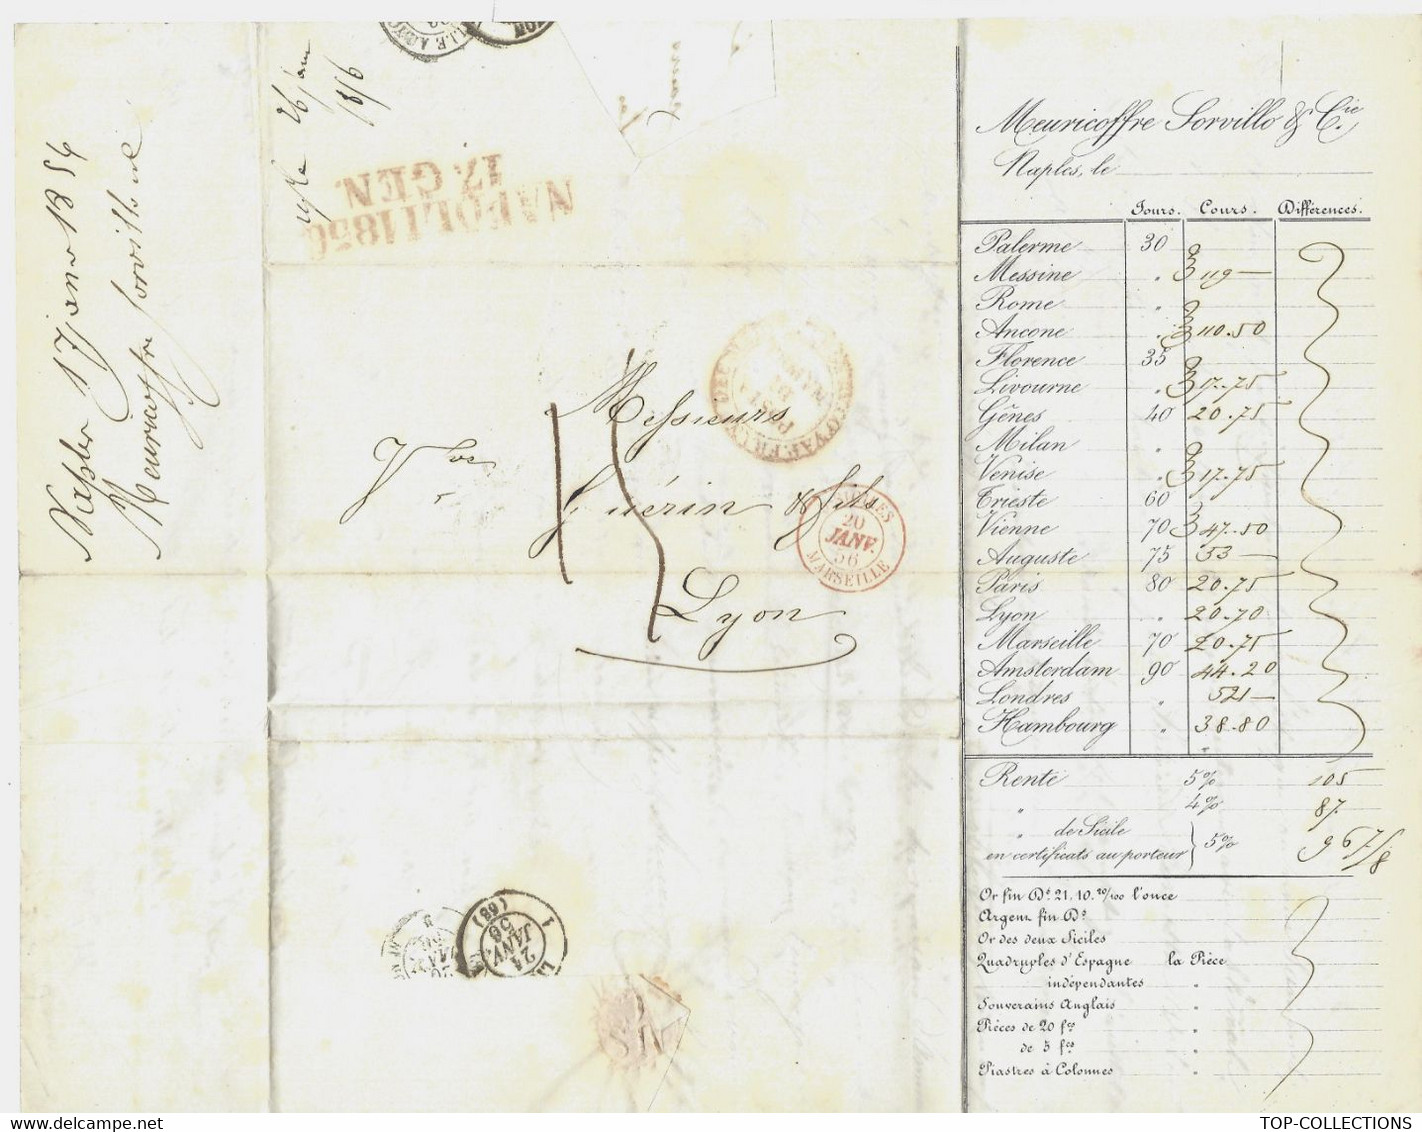 Naples 17 janv 1856
Meuricoffre Sorvillo
26 janv
1856
NAPOLI 1856
17. GEN.
Messieurs
Guérin & fils
Lyon
15
20
JANV.
56
MARSEILLE
21
JANV.
56
(68)
Meuricoffre Sorvillo & Cie.
Naples, le
Jours. Cours. Différences.
Palerme 30
Messine " 119 —
Rome
Ancone " 110.50
Florence 35
Livourne " 17.75
Gênes 40 20.75
Milan "
Venise " 17.75
Trieste 60
Vienne 70 47.50
Auguste 75 53 —
Paris 80 20.75
Lyon " 20.70
Marseille 70 20.75
Amsterdam 90 44.20
Londres " 521 —
Hambourg " 38.80
"
Rente 5% 105
" 4% 87
" de Sicile
en certificats au porteur } 5% 96 7/8
Or fin Dt. 21,10.20/100 l'once
Argent fin Ds
Or des deux Siciles
Quadruples d'Espagne la Pièce
indépendantes "
Souverains Anglais "
Pièces de 20 fcs "
de 5 fcs "
Piastres à Colonnes "
TOP-COLLECTIONS